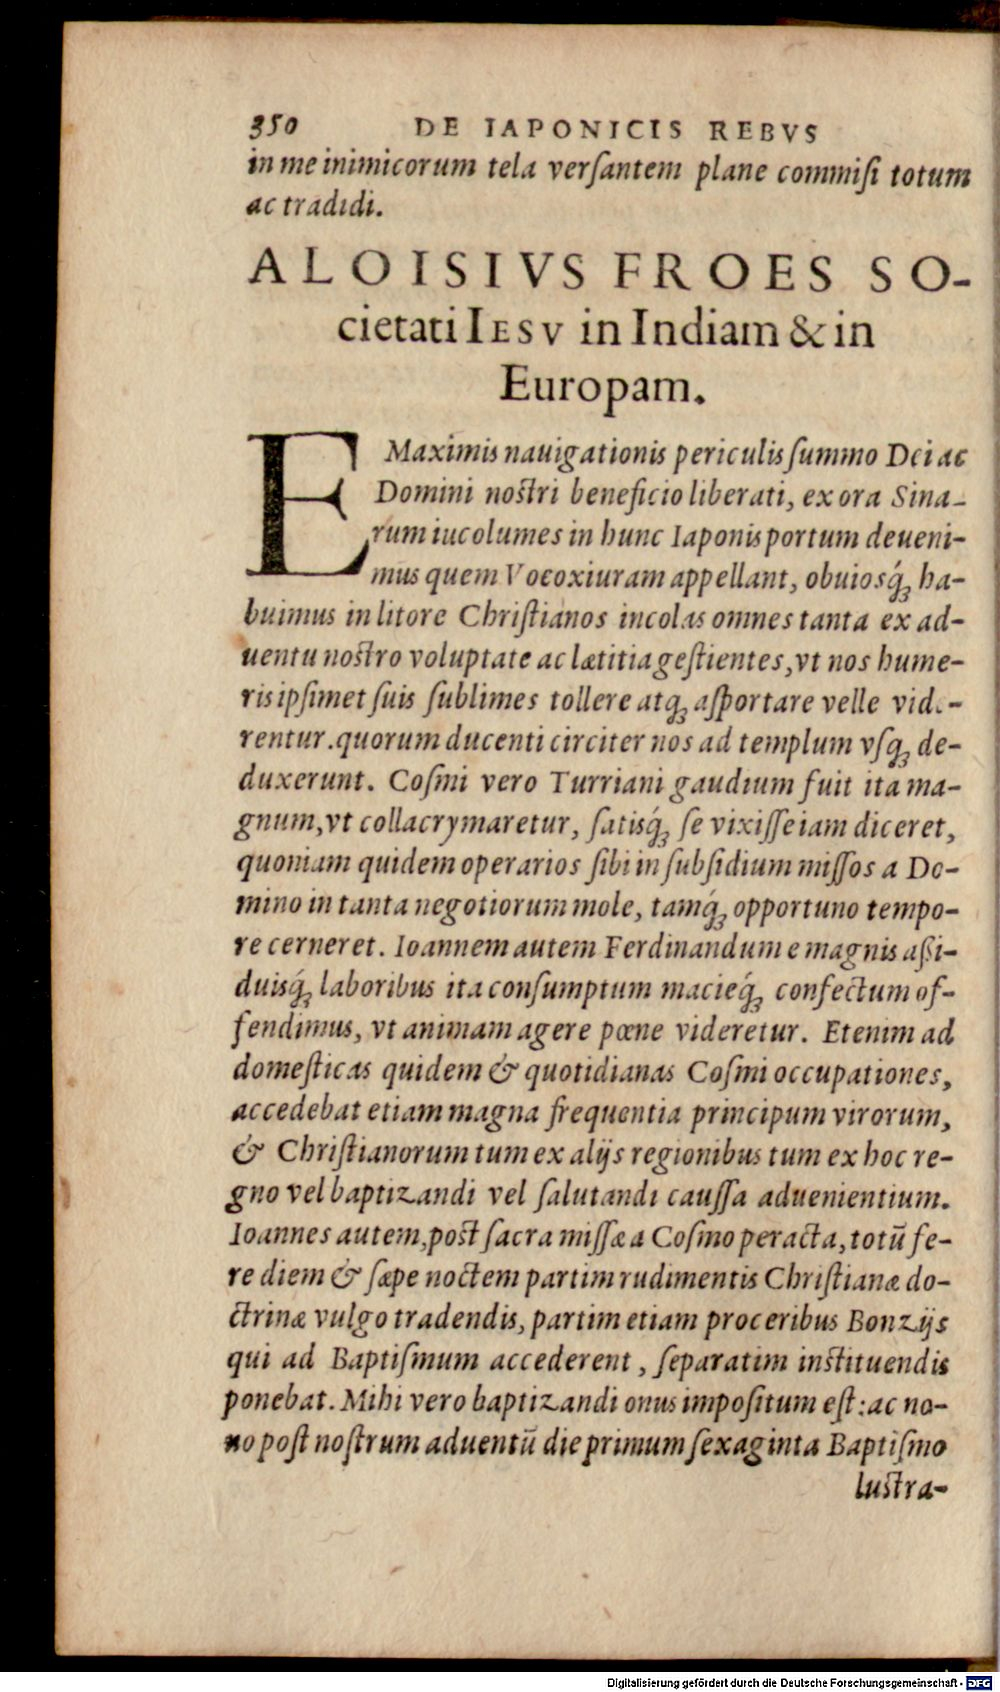 350 DE IAPONICIS REBVS
in me inimicorum tela verſantem plane commiſi totum
ac tradidi.
ALOISIVS FROES SO-
cietati IESV in Indiam & in
Europam.
E Maximis nauigationis periculis ſummo Dei ac
Domini noſtri beneficio liberati, ex ora Sina-
rum iucolumes in hunc Iaponis portum deueni-
mus quem Vocoxiuram appellant, obuiosq́; ha-
buimus in litore Chriſtianos incolas omnes tanta ex ad-
uentu noſtro voluptate ac lætitia geſtientes, vt nos hume-
ris ipſimet ſuis ſublimes tollere atq; aſportare velle vide-
rentur. quorum ducenti circiter nos ad templum vſq; de-
duxerunt. Coſmi vero Turriani gaudium fuit ita ma-
gnum, vt collacrymaretur, ſatisq́; ſe vixiſſe iam diceret,
quoniam quidem operarios ſibi in ſubſidium miſſos a Do-
mino in tanta negotiorum mole, tamq́; opportuno tempo-
re cerneret. Ioannem autem Ferdinandum e magnis aßi-
duisq́; laboribus ita conſumptum macieq́; confectum of-
fendimus, vt animam agere pœne videretur. Etenim ad
domeſticas quidem & quotidianas Coſmi occupationes,
accedebat etiam magna frequentia principum virorum,
& Chriſtianorum tum ex alijs regionibus tum ex hoc re-
gno vel baptizandi vel ſalutandi cauſſa aduenientium.
Ioannes autem, poſt ſacra miſſæ a Coſmo peracta, totū fe-
re diem & ſæpe noctem partim rudimentis Chriſtianæ do-
ctrinæ vulgo tradendis, partim etiam proceribus Bonzijs
qui ad Baptiſmum accederent, ſeparatim inſtituendis
ponebat. Mihi vero baptizandi onus impoſitum eſt: ac no-
no poſt noſtrum aduentū die primum ſexaginta Baptiſmo
luſtra-
Digitalisierung gefördert durch die Deutsche Forschungsgemeinschaft - DFG